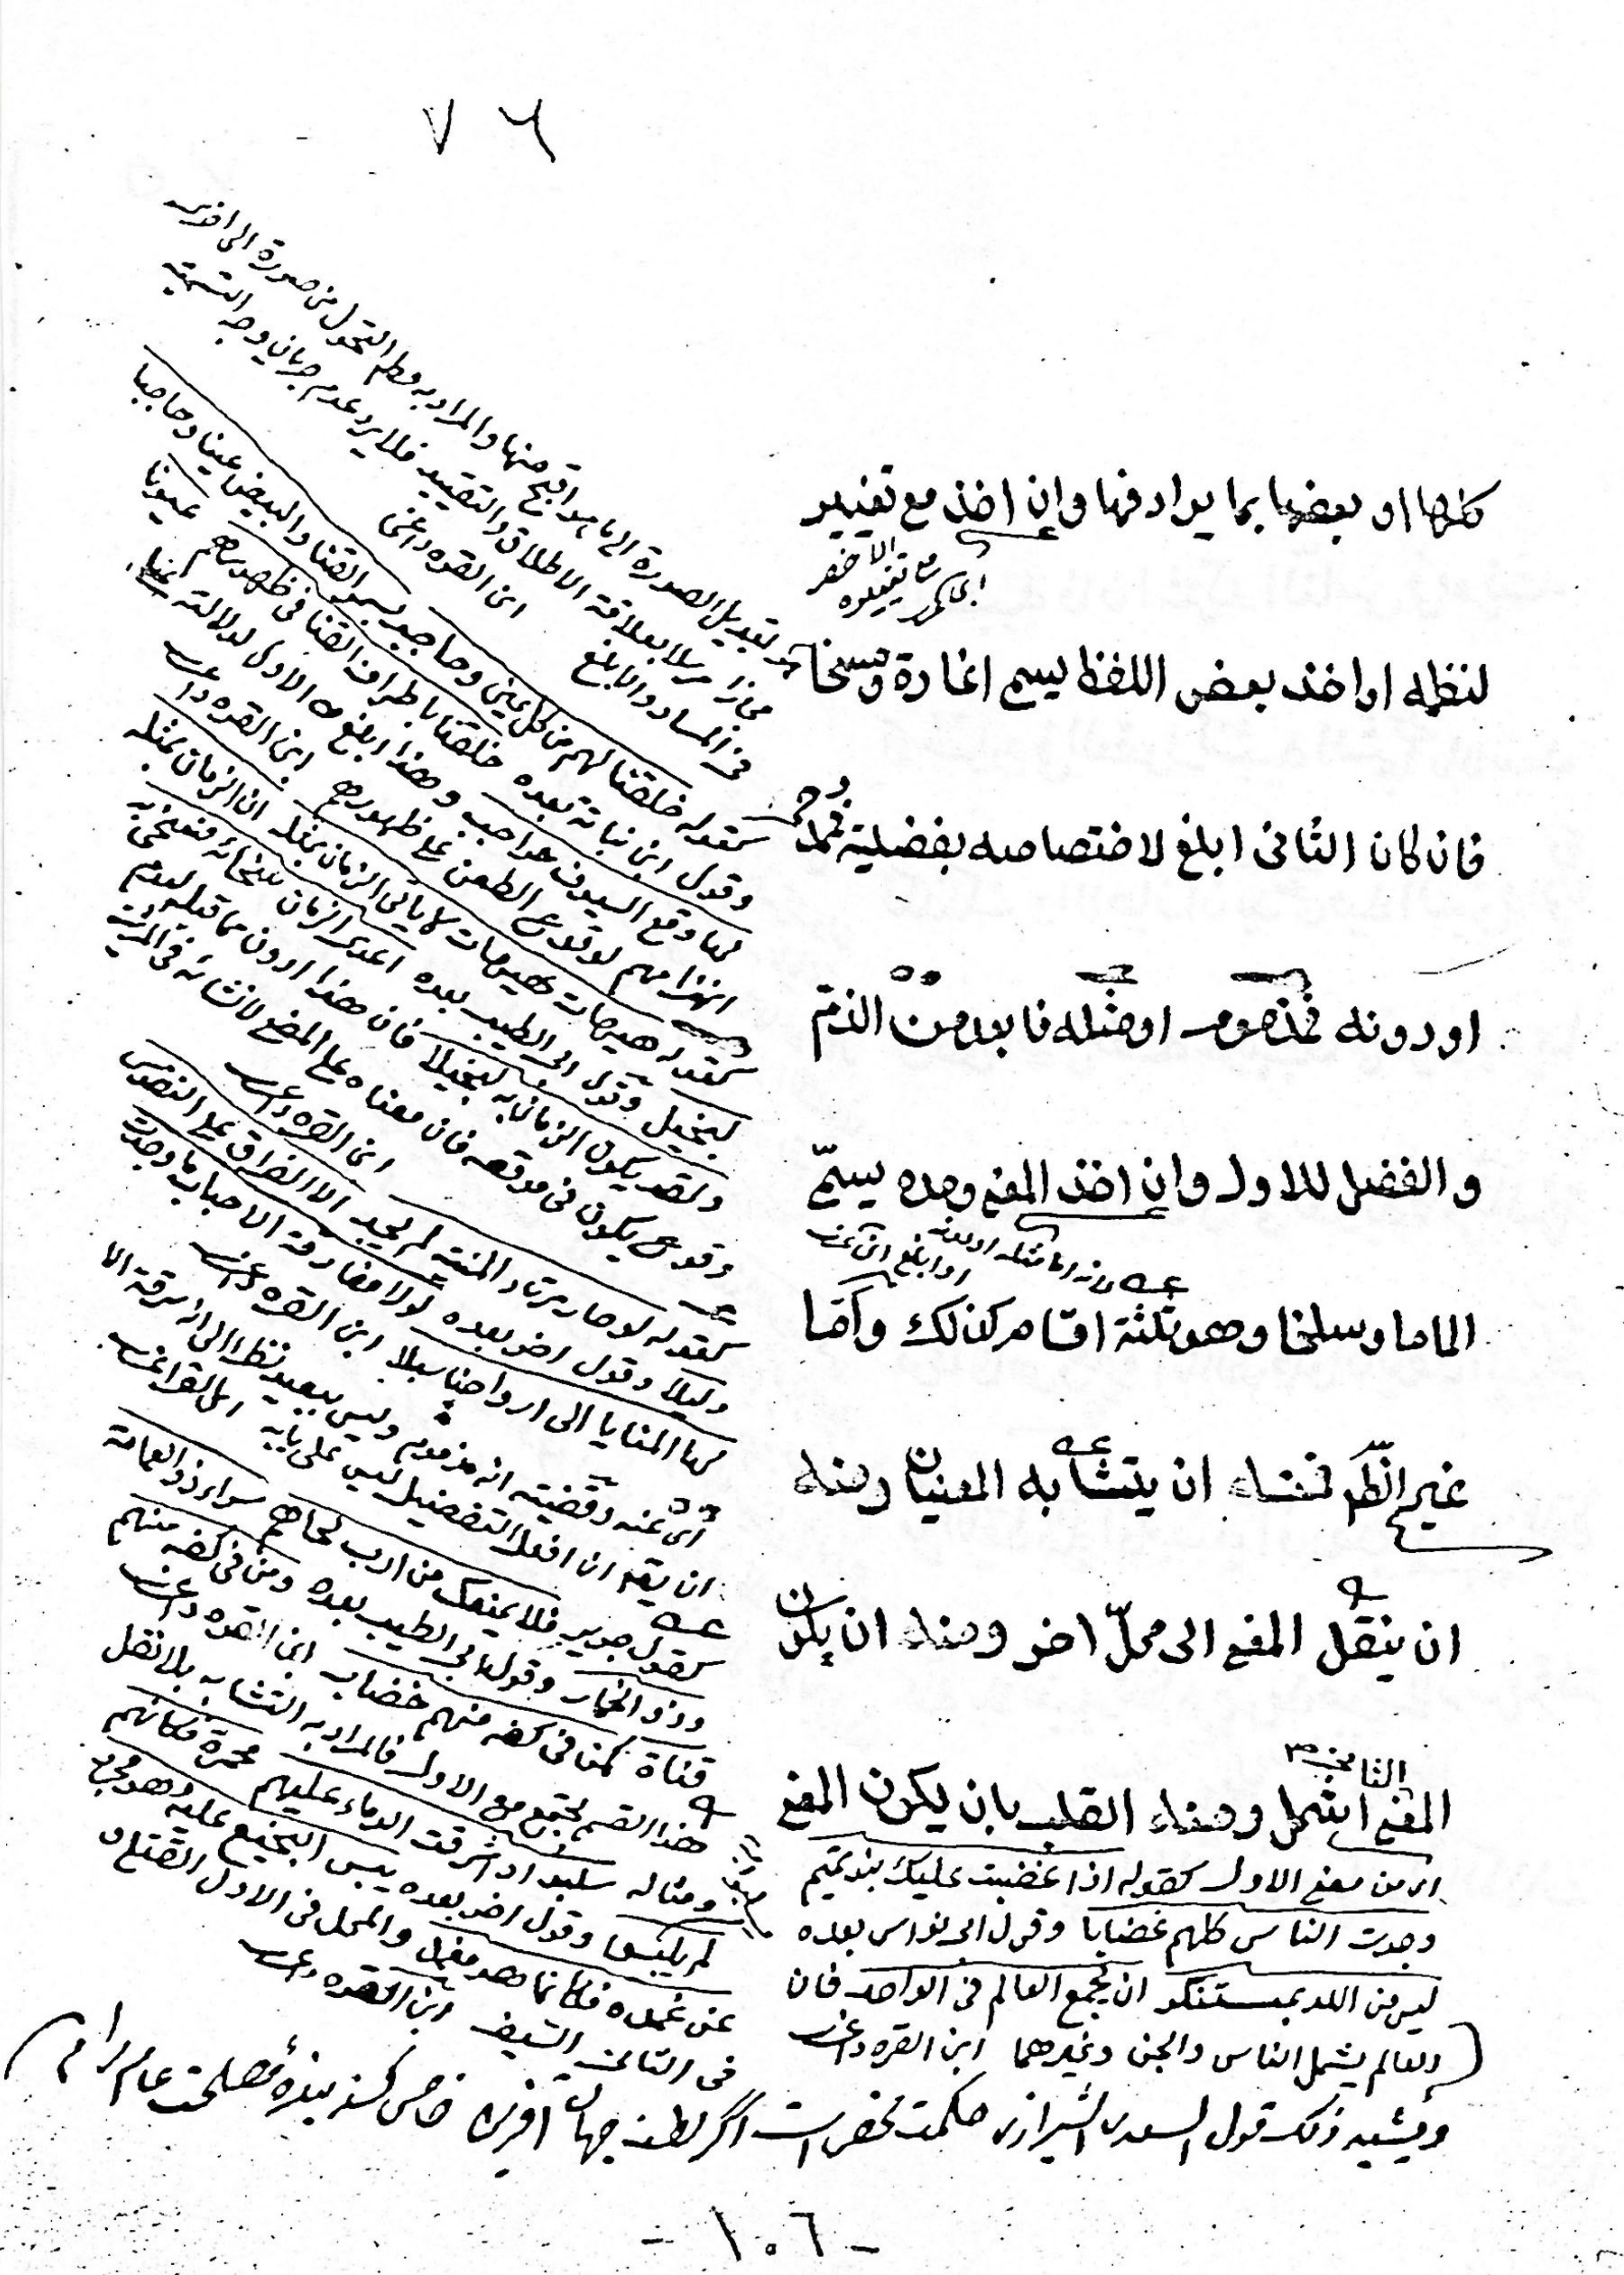 ٧٦
كلها او بعضها بما يرادفها وإن اخذ مع تغيير
لنظمه او اخذ بعض اللفظ يسمى اغارة ومسخا
فان كان الثانى ابلغ لاختصاصه بفضيلة فممدوح
او دونه فمذموم او مثله فابعد من الذمّ
والفضل للاول وإن اخذ المعنى وحده يسمّى
الماما وسلخا وهو ثلثة اقسام كذلك وأمّا
غير الظّاهر فمنه ان يتشابه المعنيان ومنه
ان ينقل المعنى الى محلّ اخر ومنه ان يكون
الثانى
المعنى اشمل ومنه القلب بان يكون المعنى
اى من معنى الاول كقوله اذا غضبت عليك بنو تميم
وجدت الناس كلهم غضابا وقول ابى نواس بعده
ليس من الله بمستنكر ان يجمع العالم فى الواحد فان
العالم يشمل الناس والجن وغيرهما ابن القره داغى
تبديل الصورة الى ما هو اقبح منها والمراد به مطلق التحول من صورة الى اخرى
مجازا مرسلا بعلاقة الاطلاق والتقييد فلا يرد عدم جريان وجه التسمية
فى المساوى والابلغ ابن القره داغى
كقوله خلقنا لهم من كل عين وحاجب بسمر القنا والبيض عينا وحاجبا
وقول ابن نباتة بعده خلقنا باطراف القنا فى ظهورهم عيونا
لها وقع السيوف حواجب وهذا ابلغ من الاول لدلالته على
انهزامهم لوقوع الطعن على ظهورهم ابن القره داغى
كقوله هيهات لا يأتى الزمان بمثله ان الزمان بمثله
لبخيل وقول ابى الطيب بعده اعدى الزمان سخائه فسخى به
ولقد يكون الزمان به لبخيلا فان هذا ادون مما قبله لعدم
كقوله لو حار مرتاد المنية لم يجد الا الفراق على النفوس
دليلا وقول اخر بعده لولا مفارقة الاحباب ما وجدت
لها المنايا الى ارواحنا سبلا ابن القره داغى
ان يقال ان افعل التفضيل ليس على بابه
كقول جرير فلا يمنعك من ارب لحاهم سواء ذو العمامة
وذو الخمار وقول ابى الطيب بعده ومن فى كفه منهم
قناة كمن فى كفه منهم خضاب ابن القره داغى
هذا القسم يجتمع مع الاول فالمراد به التشابه بلا نقل
ومثاله سلبوا واشرقت الدماء عليهم محمرة فكانهم
لم يسلبوا وقول اخر بعده يبس النجيع عليه وهو مجرد
عن غمده فكانما هو مغمد والمحل فى الاول القتلى
فى الثانى السيف ابن القره داغى
ويشبه ذلك قول السعدى الشيرازى حكمت محض است اگر لطف جهان آفرين خاص كند بندهٔ مصلحت عام را
- ١٠٦ -